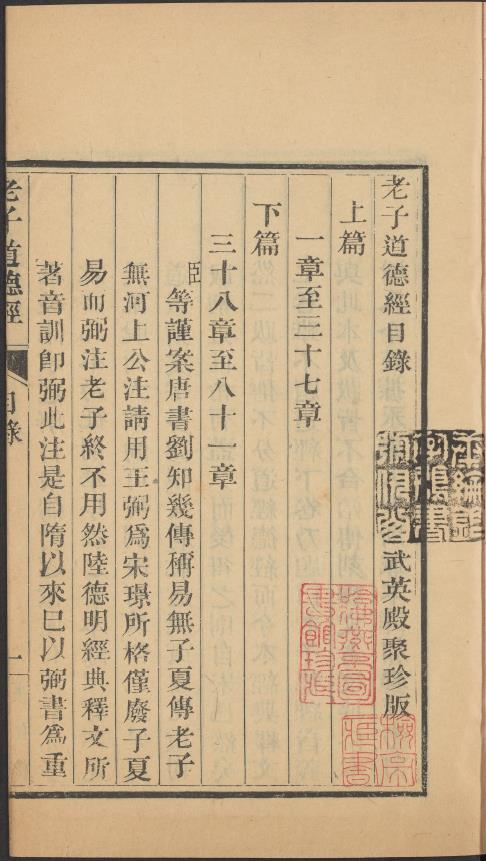 老子道德經目錄
武英殿聚珍版
上篇
一章至三十七章
下篇
三十八章至八十一章
臣等謹案唐書劉知幾傳稱易無子夏傳老子
無河上公注請用王弼爲宋璟所格僅廢子夏
易而弼注老子終不用然陸德明經典釋文所
著音訓卽弼此注是自隋以來已以弼書爲重
老子道德經
目錄
一